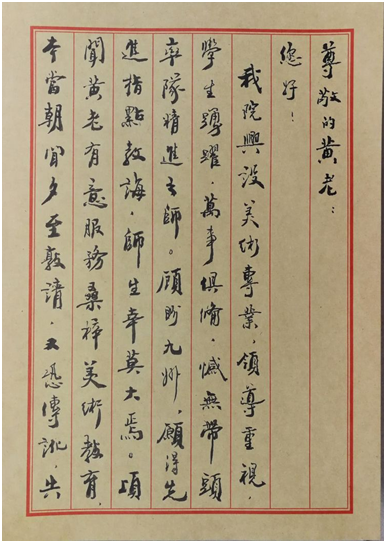 尊敬的黄老：
您好！
我院興設美术專業，領導重視，
學生踴躍，萬事俱備，憾無帶頭
率隊精進之師。顧盼九州，願得先
進指點教誨，師生幸莫大焉。頃
聞黄老有意服務桑梓美術教育，
本當朝聞夕至敦請，又恐傳訛，失